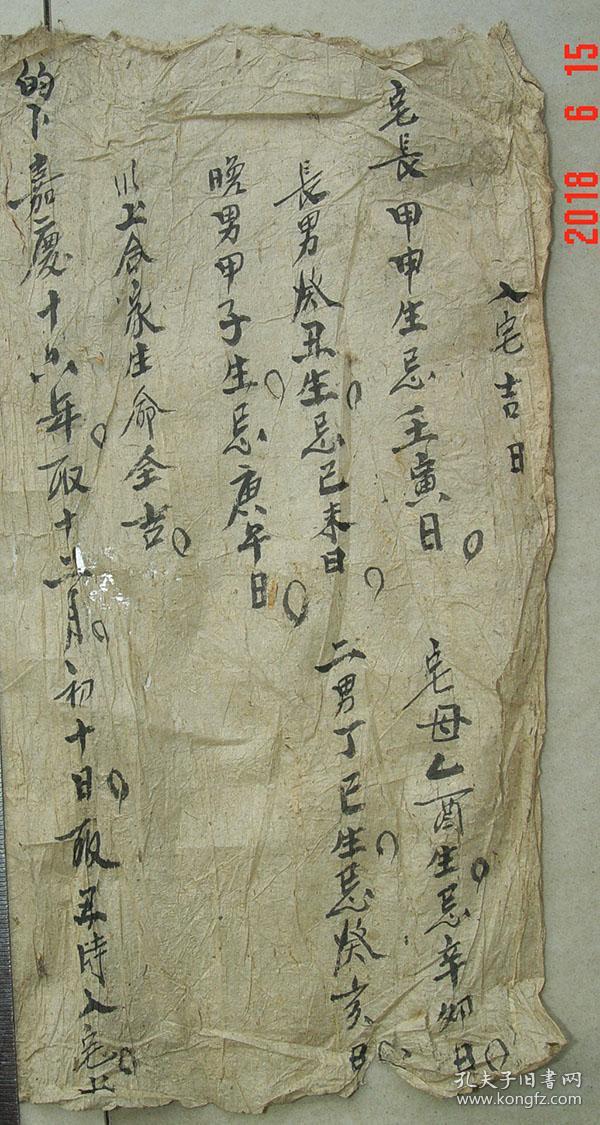 入宅吉日
宅長甲申生忌壬寅日
宅母乙酉生忌辛夘日
長男癸丑生忌己未日
二男丁巳生忌癸亥日
晚男甲子生忌庚午日
以上合家生命全吉
的卜嘉慶十六年取十二月初十日取丑時入宅上
2018 6 15
孔夫子旧書网
www.kongfz.com